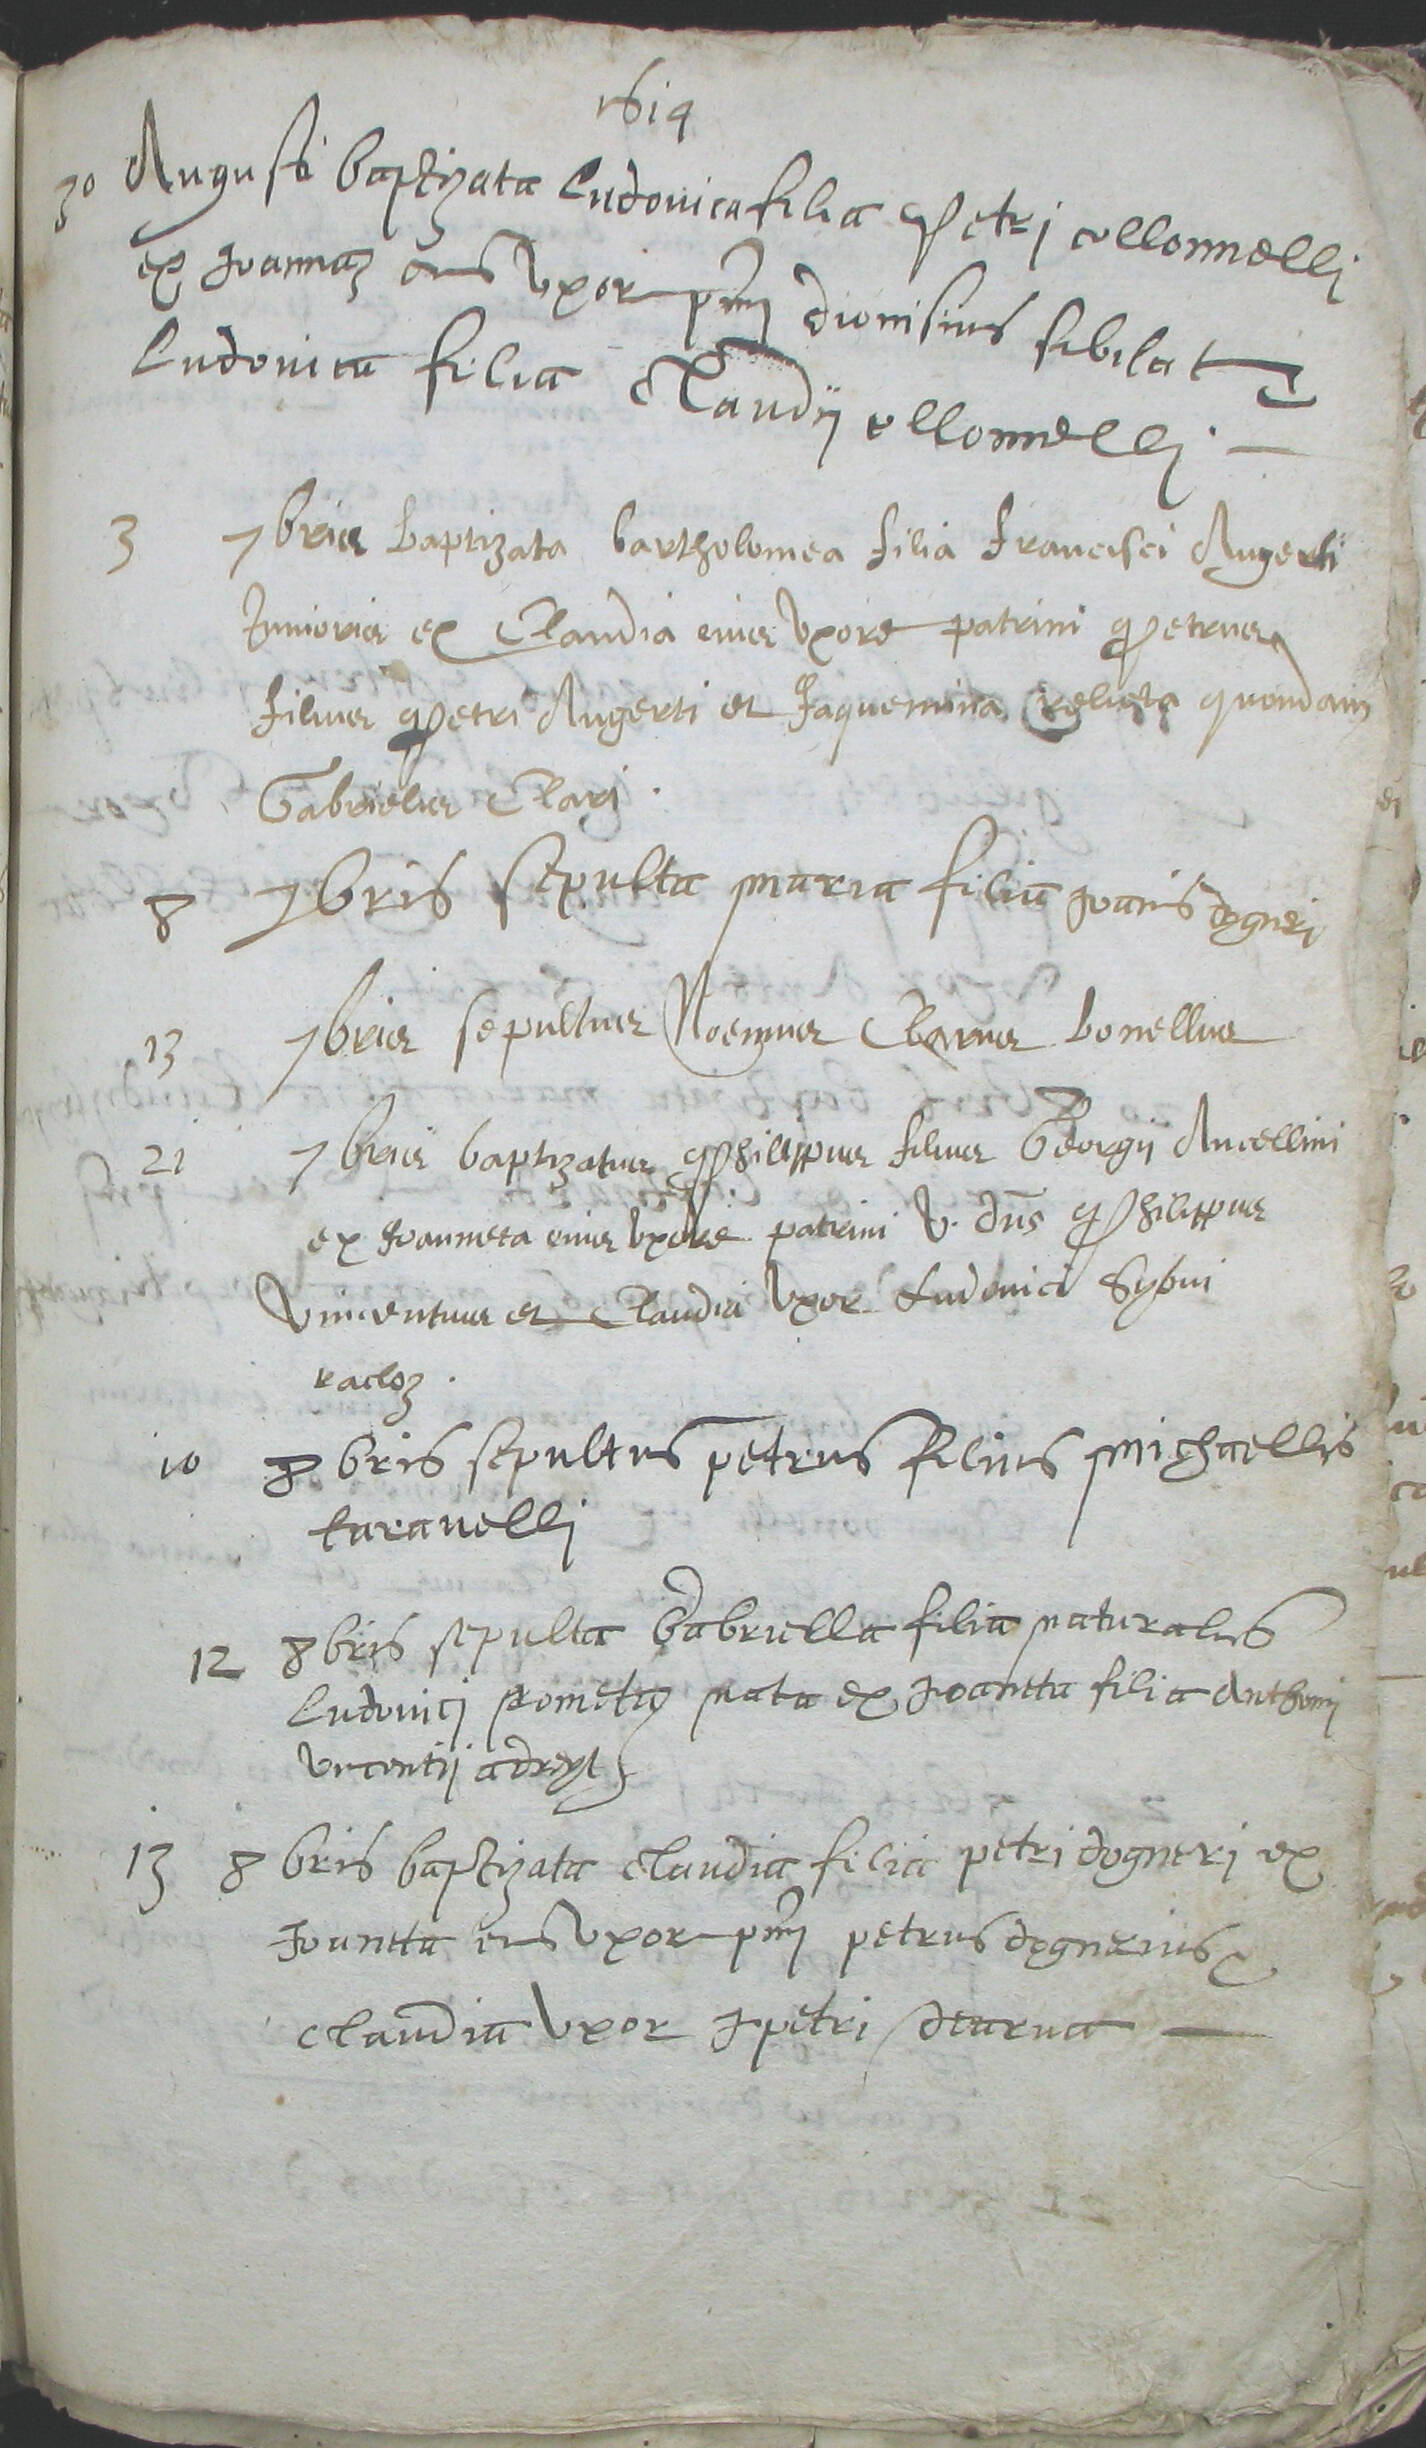 1614
30 Augusti baptizata ludovica filia Petri collonnelli
ex Joannaz eius Uxor prni dionisius sibilat
ludovica filia Claudij collonnelli
3 7bris baptizata bartholomea filia Francisci Augerti
Junioris ex Claudia eius Uxore patrini Petrus
filius Petri Augerti et Jaquemina relicta quondam
Gabrielis Clari.
8 7bris sepulta maria filia Joanis dogneri
13 7bris sepultus Noemus Clarus bonellus
21 7bris baptizatus Philippus filius Georgij Ancellini
ex Joanneta eius Uxore patrini V. dns Philippus
Vincentius et Claudia Uxor Ludovici Sybui
racloz.
10 8bris sepultus petrus filius michaellis
taravelli
12 8bris sepulta Gabriella filia naturalis
Ludovici pometaz nata ex Joaneta filia Anthonij
Vincentij adreyt
13 8bris baptizata claudia filia petri dogneri ex
Joaneta eius Uxor prnj petrus dognerius
claudia Uxor Jpetri